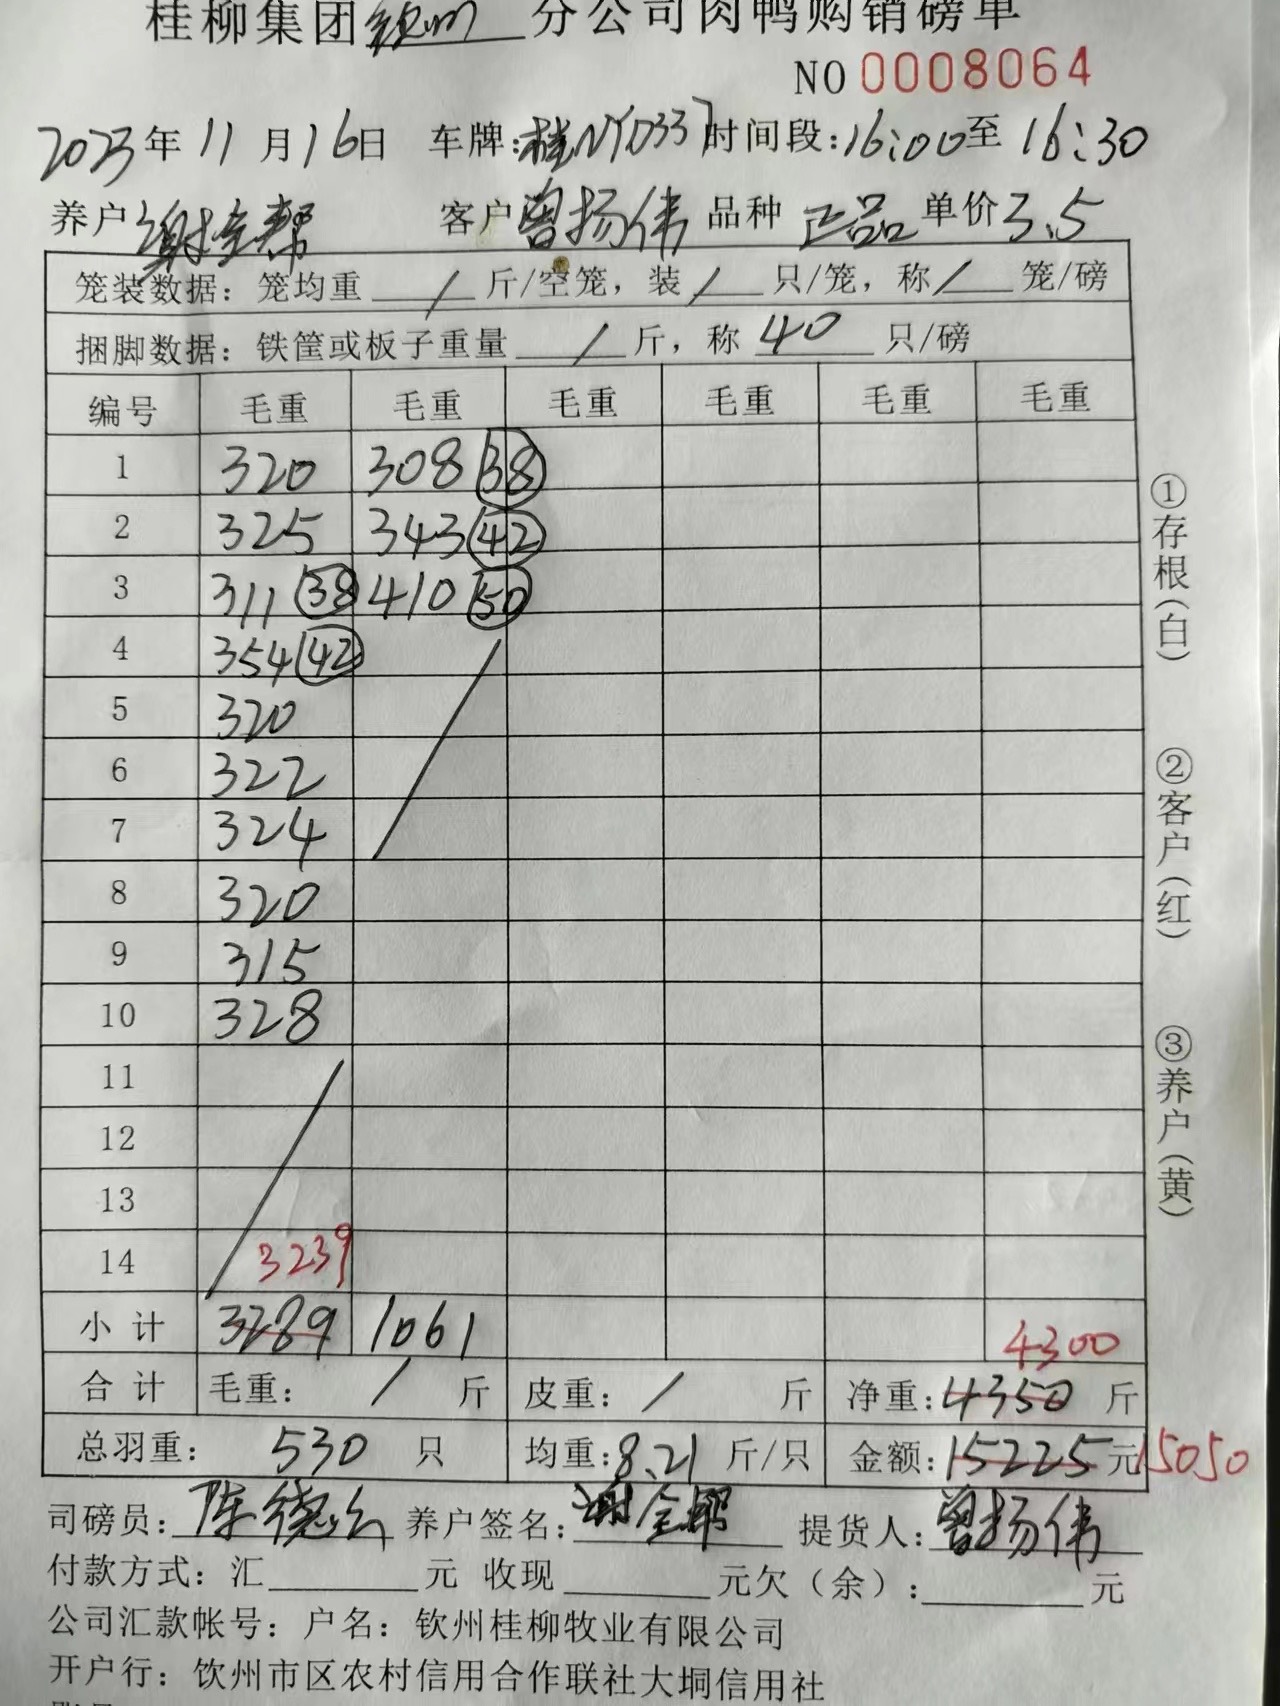 桂柳集团钦州分公司肉鸭购销磅单
NO 0008064
2023年11月16日 车牌:桂NYD337 时间段:16:00至16:30
养户 客户曾扬伟 品种 正品 单价3.5
笼装数据：笼均重 / 斤/空笼，装 / 只/笼，称 / 笼/磅
捆脚数据：铁筐或板子重量 / 斤，称 40 只/磅
编号 毛重 毛重 毛重 毛重 毛重 毛重
1 320 308 38
2 325 343 42
3 311 38 410 50
4 354 42
5 320
6 322
7 324
8 320
9 315
10 328
11
12
13
14 3239
小计 3289 1061 4300
合计 毛重： / 斤 皮重： / 斤 净重:4350 斤
总羽重： 530 只 均重:8.21 斤/只 金额:15225元 15050
司磅员: 陈 养户签名: 谢全帮 提货人:曾扬伟
付款方式：汇 元 收现 元欠（余）: 元
公司汇款帐号：户名：钦州桂柳牧业有限公司
开户行：钦州市区农村信用合作联社大垌信用社
①存根(白)
②客户(红)
③养户(黄)